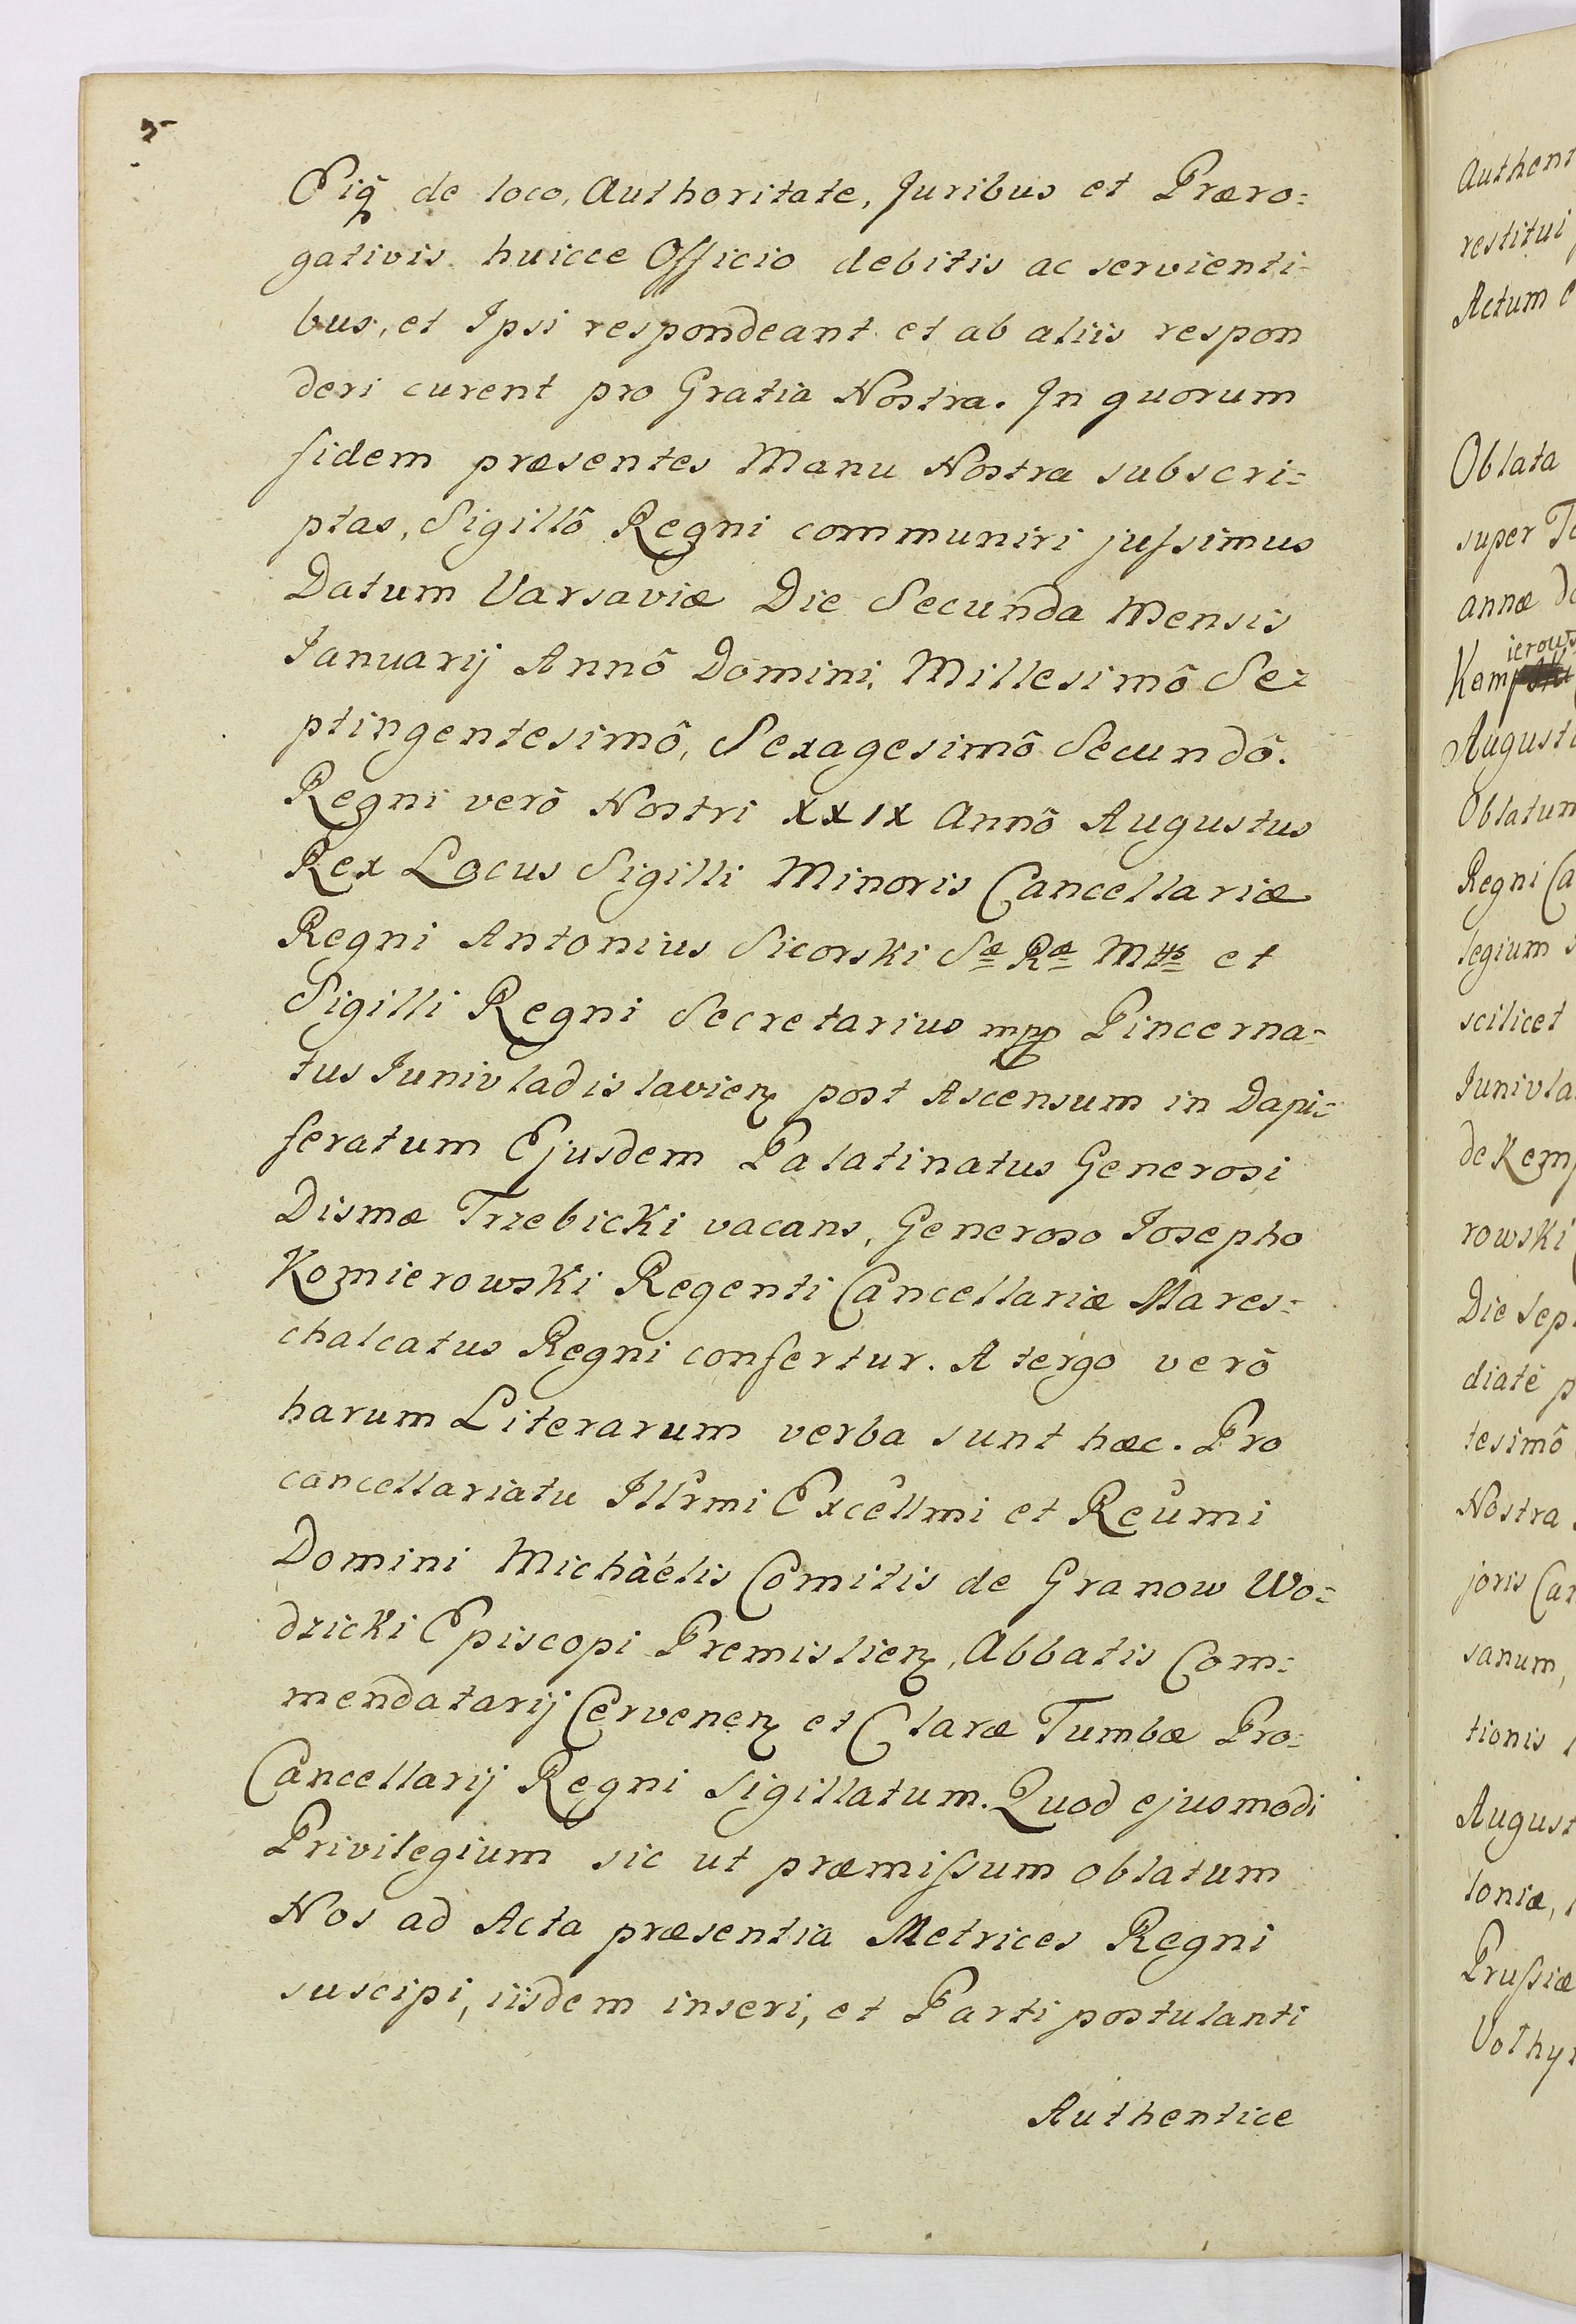 Eiq̃ de loco, Authoritate, Juribus et Præro=
gativis huicce Officio debitis ac servienti=
bus, et Ipsi respondeant et ab aliis respon
deri curent pro Gratia Nostra. In quorum
fidem præsentes Manu Nostra subscri=
ptas, Sigillô Regni communiri jussimus
Datum Varsaviæ Die Secunda Mensis
Januarij Annô Domini, Millesimô Se=
ptingentesimô, Sexagesimô Secundô.
Regni verô Nostri XXIX Annô Augustus
Rex Locus Sigilli Minoris Cancellariæ
Regni Antonius Sicorski Sæ Ræ Mttis et
Sigilli Regni Secretarius mpp Pincerna=
tus Junivladislavien̄ post Ascensum in Dapi=
feratum Ejusdem Palatinatus Generosi
Dismæ Trzebicki vacans, Generoso Josepho
Komierowski Regenti Cancellariæ Mares=
chalcatus Regni confertur. A tergo verô
harum Literarum verba sunt hæc. Pro
cancellariatu Illr̃mi Excẽllmi et Reũmi
Domini Michàélis Comitis de Granow Wo=
dzicki Episcopi Premislien̄, Abbatis Com=
mendatarij Cervenen̄ et Claræ Tumbæ Pro=
Cancellarij Regni Sigillatum. Quod ejusmodi
Privilegium sic ut præmissum oblatum
Nos ad Acta præsentia Metrices Regni
suscipi, iisdem inseri, et Parti postulanti
Authentice
Authent
restitui
Actum
Oblata
super
annæ
ierows
Kem
Augusti
Oblatum
Regni Ca
legium
scilicet
Junivla
de Kemp
rowski
Die Sep
diatè
tesimô
Nostra
joris Can
sanum,
tionis
August
loniæ,
Prussiæ
Volhyn